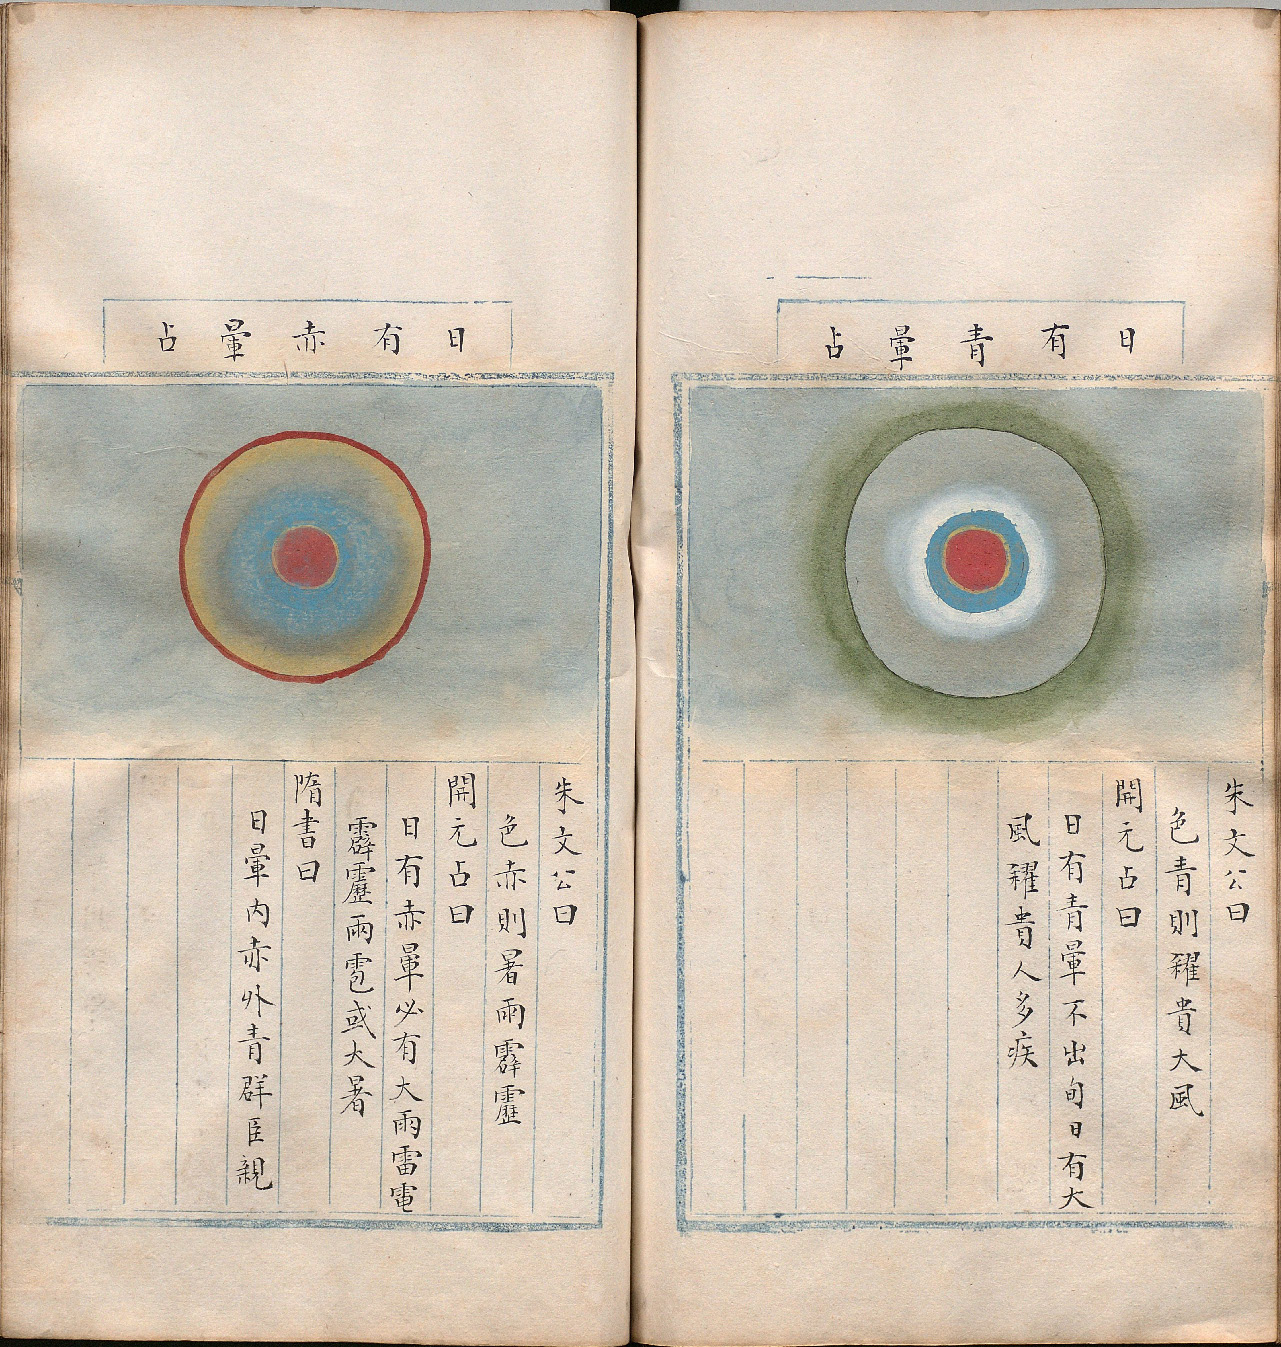 日有青暈占
朱文公曰
色青則糴貴大風
開元占曰
日有青暈不出旬日有大
風糴貴人多疾
日有赤暈占
朱文公曰
色赤則暑雨霹靂
開元占曰
日有赤暈必有大雨雷電
霹靂雨雹或大暑
隋書曰
日暈内赤外青群臣親